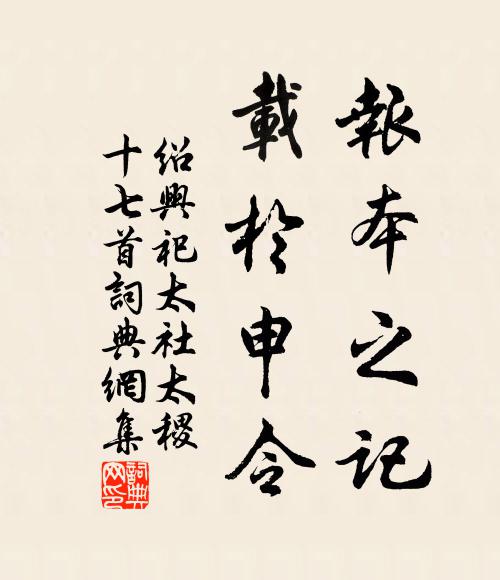 報本之記
載於申令
紹興祀太社太稷
十七首詞典網集
詞典
网印